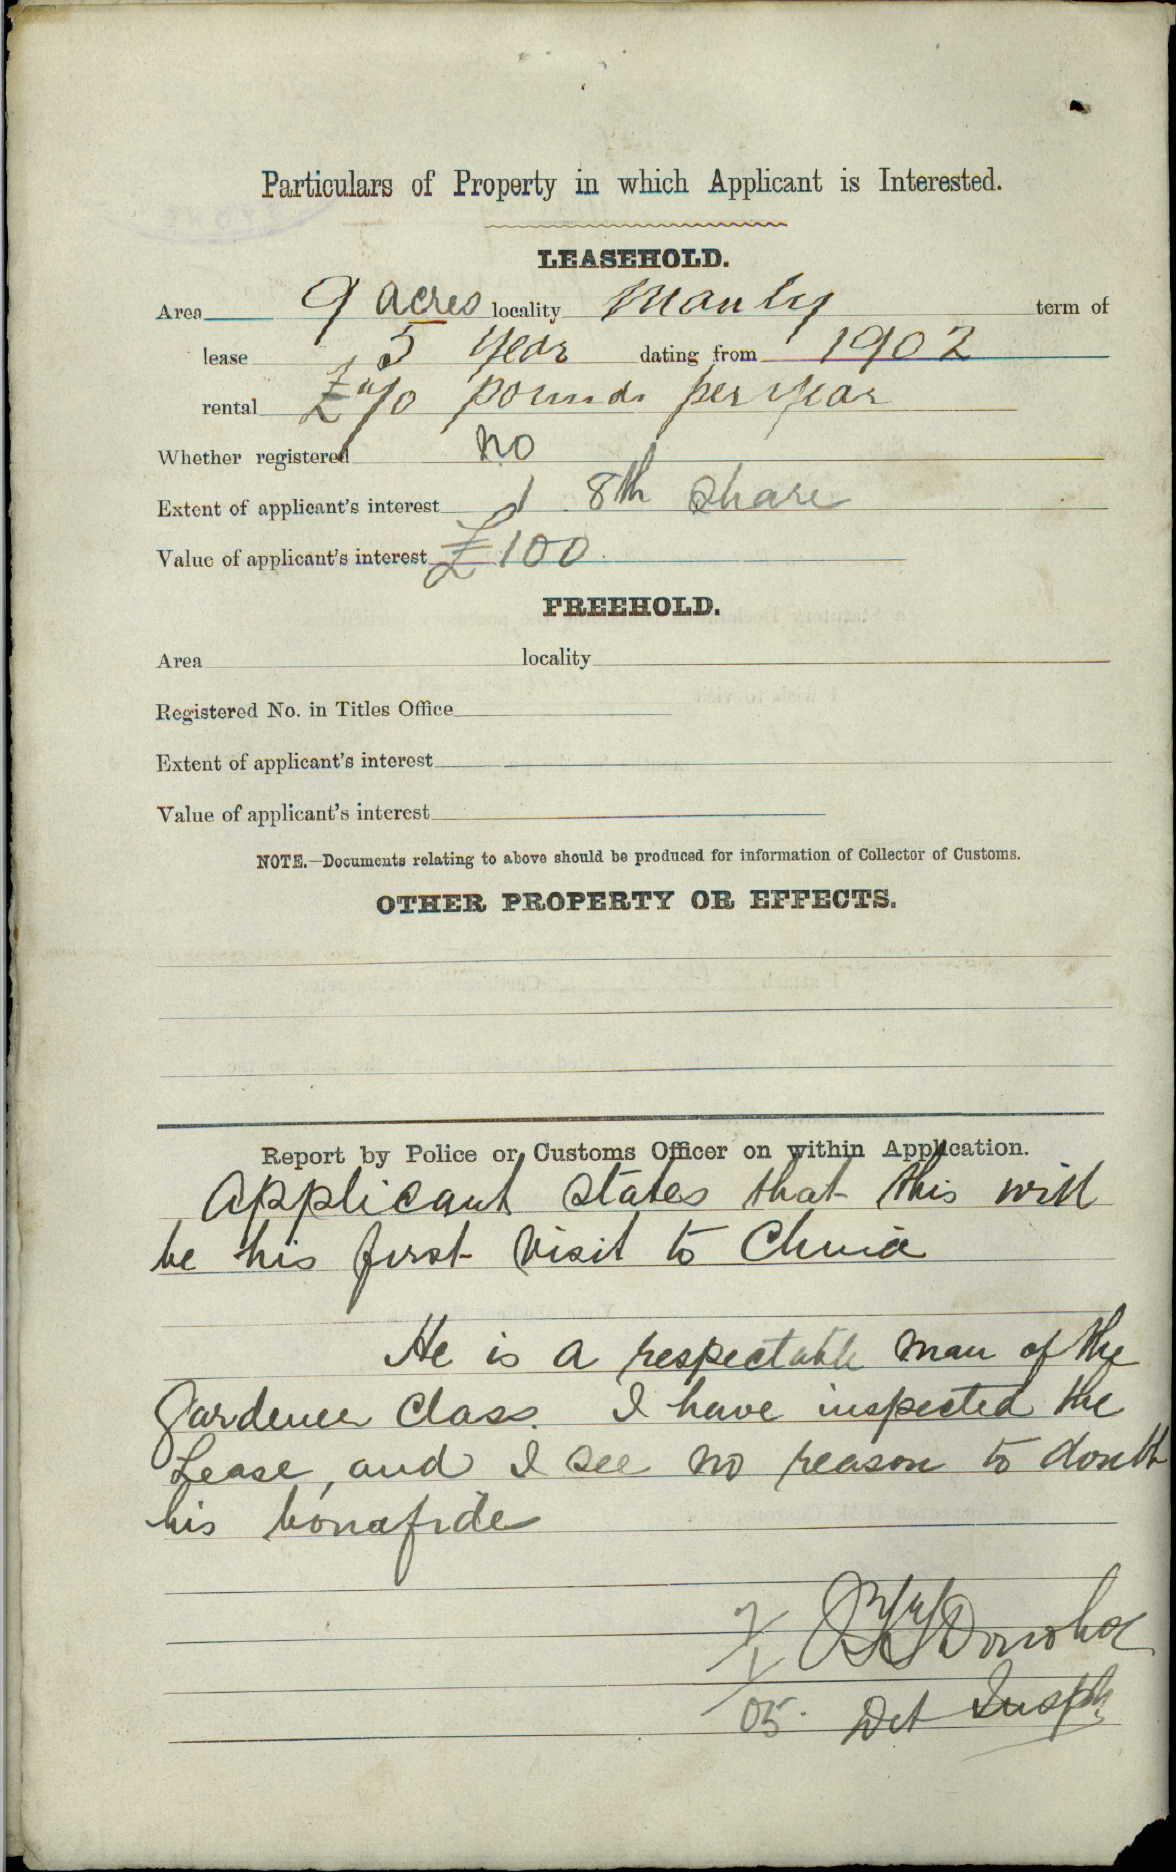 Particulars of Property in which Applicant is Interested.
LEASEHOLD.
Area 9 acres locality Manly term of
lease 5 year dating from 1902
rental £40 pounds per year
Whether registered no
Extent of applicant's interest 1 8th share
Value of applicant's interest £100
FREEHOLD.
Area locality
Registered No. in Titles Office
Extent of applicant's interest
Value of applicant's interest
NOTE.—Documents relating to above should be produced for information of Collector of Customs.
OTHER PROPERTY OR EFFECTS.
Report by Police or Customs Officer on within Application.
Applicant states that this will
be his first visit to China
He is a respectable man of the
Gardener Class. I have inspected the
Lease, and I see no reason to doubt
his bonafide
Donohoe
05. Det Inspr